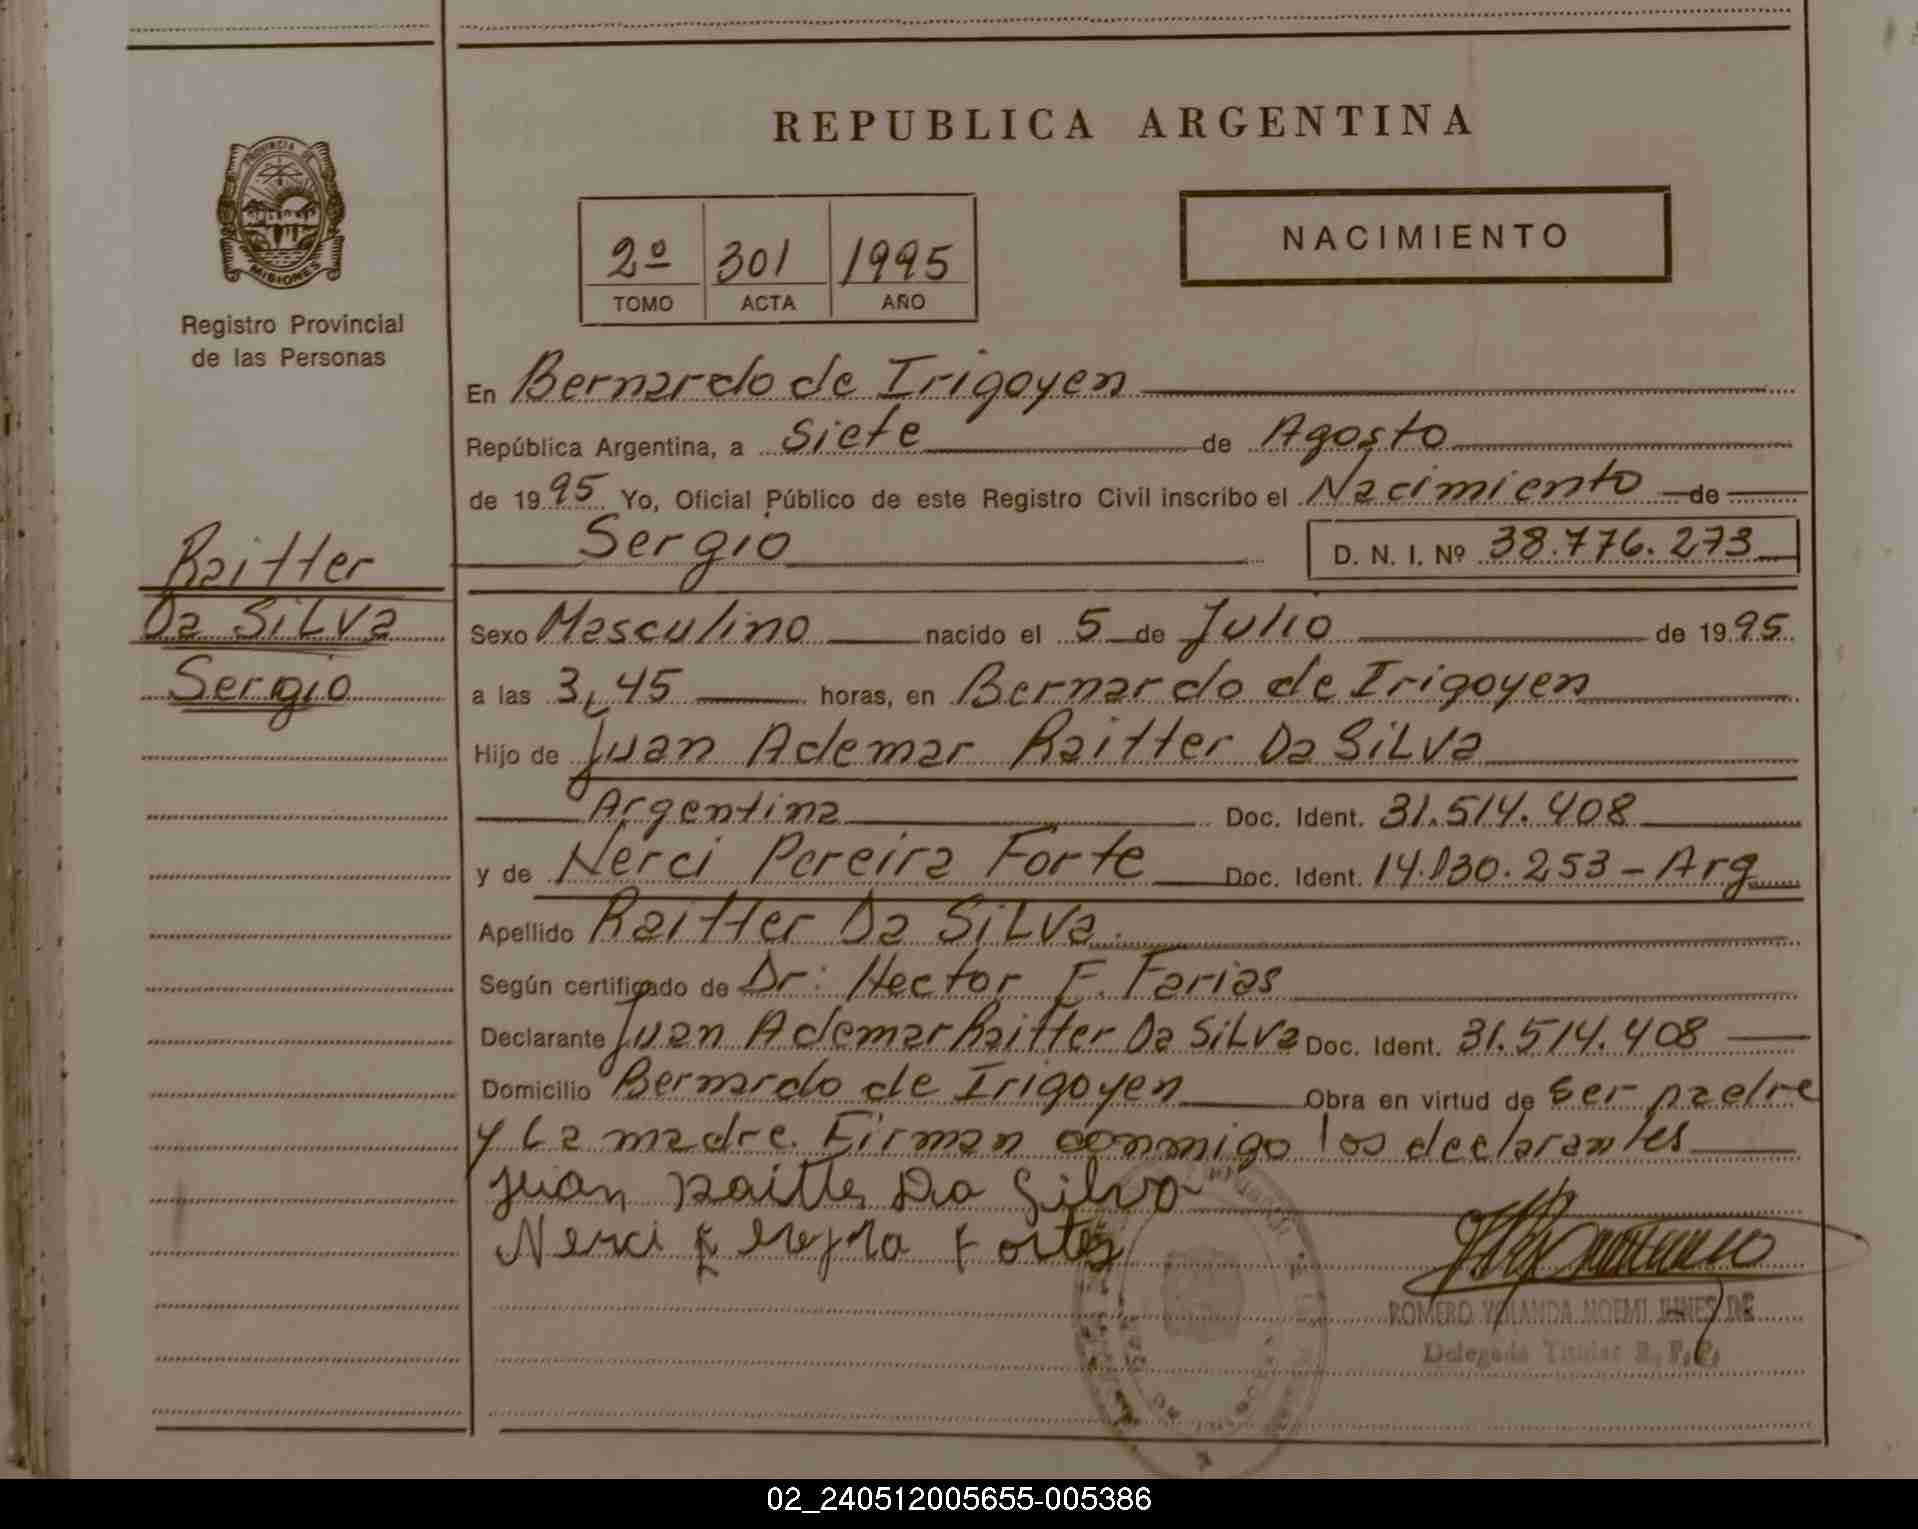 REPUBLICA ARGENTINA
PROVINCIA DE
MISIONES
Registro Provincial
de las Personas
2º 301 1995
TOMO ACTA AÑO
NACIMIENTO
En Bernardo de Irigoyen
República Argentina, a Siete de Agosto
de 1995 Yo, Oficial Público de este Registro Civil inscribo el Nacimiento de
Sergio D. N. I. Nº 38.776.273
Raitter
Da SiLva
Sergio
Sexo Masculino nacido el 5 de Julio de 1995
a las 3,45 horas, en Bernardo de Irigoyen
Hijo de Juan Ademar Raitter Da SiLva
Argentina Doc. Ident. 31.514.408
y de Nerci Pereira Forte Doc. Ident. 14.130.253 - Arg
Apellido Raitter Da SiLva.
Según certificado de Dr: Hector F. Farias
Declarante Juan Ademar Raitter Da SiLva Doc. Ident. 31.514.408
Domicilio Bernardo de Irigoyen Obra en virtud de ser padre
y La madre. Firman conmigo los declarantes
Juan Raitter Da Silva
Nerci Pereyra Fortes
ROMERO YOLANDA NOEMI DE
Delegada Titular R.P.P.
02_240512005655-005386